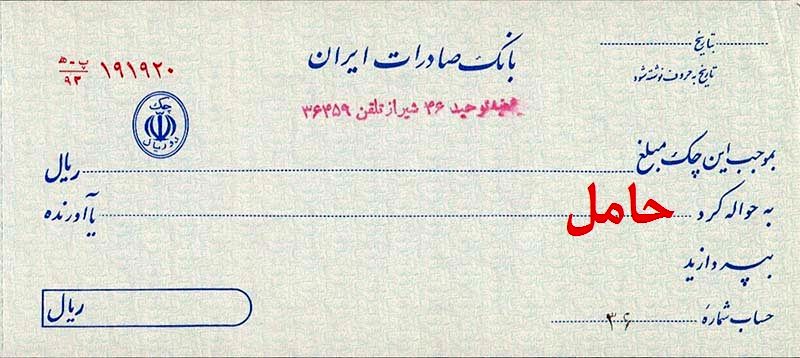 بتاریخ
تاریخ به حروف نوشته شود
بانک صادرات ایران
شعبه توحید ۴۶ شیراز تلفن ۳۶۴۵۹
۱۹۱۹۲۰ پ-ه‍ ۹۳
چک
دو ریال
بموجب این چک مبلغ ریال
به حواله کرد حامل یا آورنده
بپردازید
حساب شماره ۳۶
ریال